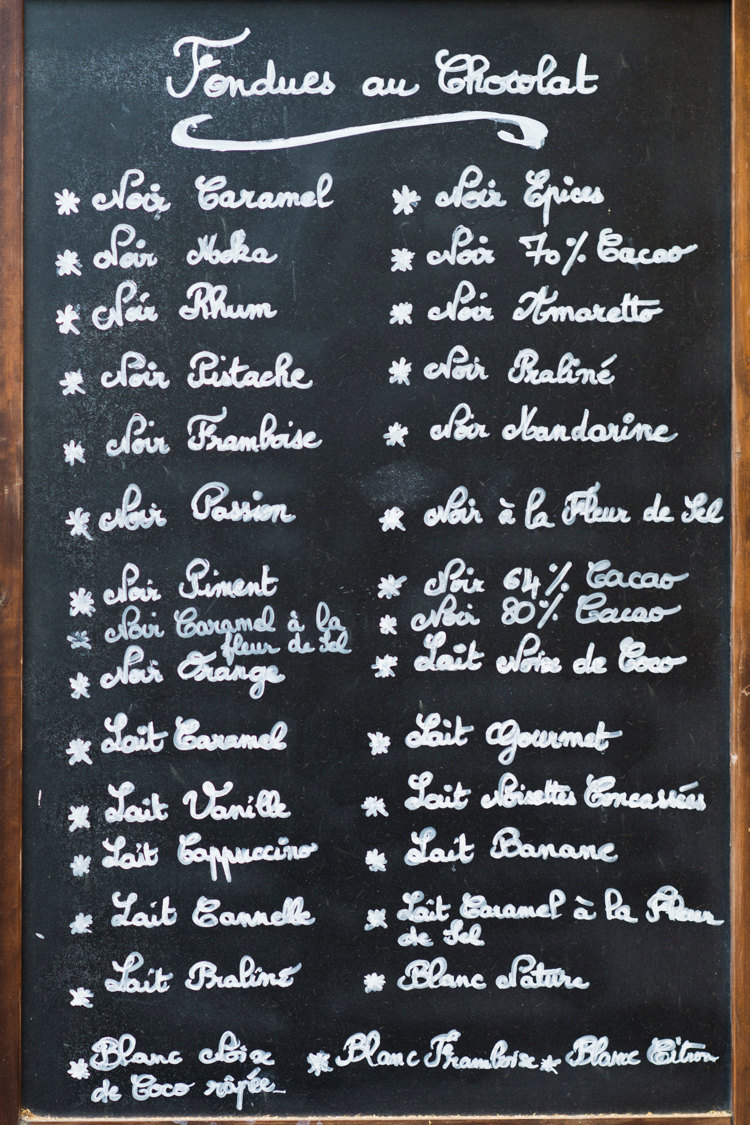 Fondues au Chocolat
* Noir Caramel
* Noir Moka
* Noir Rhum
* Noir Pistache
* Noir Framboise
* Noir Passion
* Noir Piment
* Noir Caramel à la
fleur de Sel
* Noir Orange
* Lait Caramel
* Lait Vanille
* Lait Cappuccino
* Lait Cannelle
* Lait Praliné
* Noir Epices
* Noir 70% Cacao
* Noir Amaretto
* Noir Praliné
* Noir Mandarine
* Noir à la Fleur de Sel
* Noir 64% Cacao
* Noir 80% Cacao
* Lait Noix de Coco
* Lait Gourmet
* Lait Noisettes Concassées
* Lait Banane
* Lait Caramel à la Fleur
de Sel
* Blanc Nature
* Blanc Noix
de Coco râpée
* Blanc Framboise
* Blanc Citron